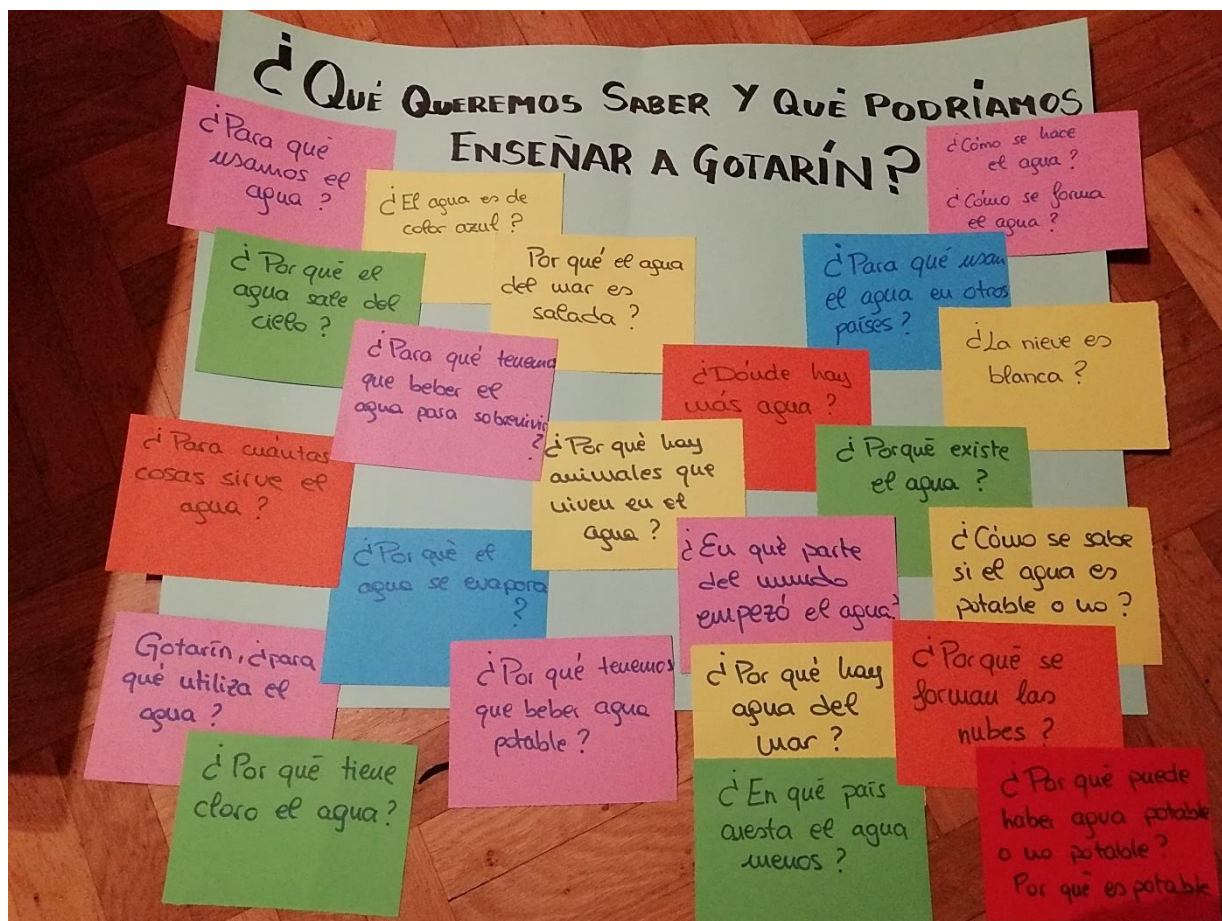 ¿QUÉ QUEREMOS SABER Y QUÉ PODRÍAMOS
ENSEÑAR A GOTARÍN?
¿Para qué
usamos el
agua?
¿El agua es de
color azul?
¿Cómo se hace
el agua?
¿Cómo se forma
el agua?
¿Por qué el
agua sale del
cielo?
Por qué el agua
del mar es
salada?
¿Para qué usan
el agua en otros
países?
¿La nieve es
blanca?
¿Para qué tenemo
que beber el
agua para sobrevivir
?
¿Dónde hay
más agua?
¿Para cuántas
cosas sirve el
agua?
¿Por qué hay
animales que
viven en el
agua?
¿Porqué existe
el agua?
¿Por qué el
agua se evapora
?
¿En qué parte
del mundo
empezó el agua?
¿Cómo se sabe
si el agua es
potable o no?
Gotarín, ¿para
qué utiliza el
agua?
¿Por qué tenemos
que beber agua
potable?
¿Por qué hay
agua del
mar?
¿Porqué se
forman las
nubes?
¿Por qué tiene
cloro el agua?
¿En qué país
cuesta el agua
menos?
¿Por qué puede
haber agua potable
o no potable?
Por qué es potable